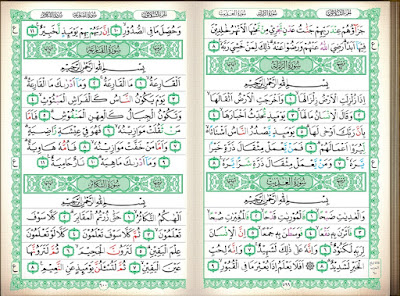 جَزَآؤُهُمْ عِندَ رَبِّهِمْ جَنَّٰتُ عَدْنٍ تَجْرِى مِن تَحْتِهَا ٱلْأَنْهَٰرُ خَٰلِدِينَ
فِيهَآ أَبَدًا رَّضِىَ ٱللَّهُ عَنْهُمْ وَرَضُوا۟ عَنْهُ ذَٰلِكَ لِمَنْ خَشِىَ رَبَّهُۥ ٨
سُورَةُ الزَّلْزَلَةِ
بِسْمِ ٱللَّهِ ٱلرَّحْمَٰنِ ٱلرَّحِيمِ
إِذَا زُلْزِلَتِ ٱلْأَرْضُ زِلْزَالَهَا ١ وَأَخْرَجَتِ ٱلْأَرْضُ أَثْقَالَهَا
٢ وَقَالَ ٱلْإِنسَٰنُ مَا لَهَا ٣ يَوْمَئِذٍ تُحَدِّثُ أَخْبَارَهَا ٤
بِأَنَّ رَبَّكَ أَوْحَىٰ لَهَا ٥ يَوْمَئِذٍ يَصْدُرُ ٱلنَّاسُ أَشْتَاتًا
لِّيُرَوْا۟ أَعْمَٰلَهُمْ ٦ فَمَن يَعْمَلْ مِثْقَالَ ذَرَّةٍ خَيْرًا
يَرَهُۥ ٧ وَمَن يَعْمَلْ مِثْقَالَ ذَرَّةٍ شَرًّا يَرَهُۥ ٨
سُورَةُ العَادِيَاتِ
بِسْمِ ٱللَّهِ ٱلرَّحْمَٰنِ ٱلرَّحِيمِ
وَٱلْعَٰدِيَٰتِ ضَبْحًا ١ فَٱلْمُورِيَٰتِ قَدْحًا ٢ فَٱلْمُغِيرَٰتِ صُبْحًا
٣ فَأَثَرْنَ بِهِۦ نَقْعًا ٤ فَوَسَطْنَ بِهِۦ جَمْعًا ٥ إِنَّ ٱلْإِنسَٰنَ
لِرَبِّهِۦ لَكَنُودٌ ٦ وَإِنَّهُۥ عَلَىٰ ذَٰلِكَ لَشَهِيدٌ ٧ وَإِنَّهُۥ لِحُبِّ
ٱلْخَيْرِ لَشَدِيدٌ ٨ أَفَلَا يَعْلَمُ إِذَا بُعْثِرَ مَا فِى ٱلْقُبُورِ ٩
٥٩٩
وَحُصِّلَ مَا فِى ٱلصُّدُورِ ١٠ إِنَّ رَبَّهُم بِهِمْ يَوْمَئِذٍ لَّخَبِيرٌۢ ١١
سُورَةُ القَارِعَةِ
بِسْمِ ٱللَّهِ ٱلرَّحْمَٰنِ ٱلرَّحِيمِ
ٱلْقَارِعَةُ ١ مَا ٱلْقَارِعَةُ ٢ وَمَآ أَدْرَىٰكَ مَا ٱلْقَارِعَةُ ٣
يَوْمَ يَكُونُ ٱلنَّاسُ كَٱلْفَرَاشِ ٱلْمَبْثُوثِ ٤
وَتَكُونُ ٱلْجِبَالُ كَٱلْعِهْنِ ٱلْمَنفُوشِ ٥ فَأَمَّا
مَن ثَقُلَتْ مَوَٰزِينُهُۥ ٦ فَهُوَ فِى عِيشَةٍ رَّاضِيَةٍ
٧ وَأَمَّا مَنْ خَفَّتْ مَوَٰزِينُهُۥ ٨ فَأُمُّهُۥ هَاوِيَةٌ
٩ وَمَآ أَدْرَىٰكَ مَا هِيَهْ ١٠ نَارٌ حَامِيَةٌۢ ١١
سُورَةُ التَّكَاثُرِ
بِسْمِ ٱللَّهِ ٱلرَّحْمَٰنِ ٱلرَّحِيمِ
أَلْهَىٰكُمُ ٱلتَّكَاثُرُ ١ حَتَّىٰ زُرْتُمُ ٱلْمَقَابِرَ ٢ كَلَّا سَوْفَ
تَعْلَمُونَ ٣ ثُمَّ كَلَّا سَوْفَ تَعْلَمُونَ ٤ كَلَّا لَوْ تَعْلَمُونَ
عِلْمَ ٱلْيَقِينِ ٥ لَتَرَوُنَّ ٱلْجَحِيمَ ٦ ثُمَّ لَتَرَوُنَّهَا
عَيْنَ ٱلْيَقِينِ ٧ ثُمَّ لَتُسْـَٔلُنَّ يَوْمَئِذٍ عَنِ ٱلنَّعِيمِ ٨
٦٠٠